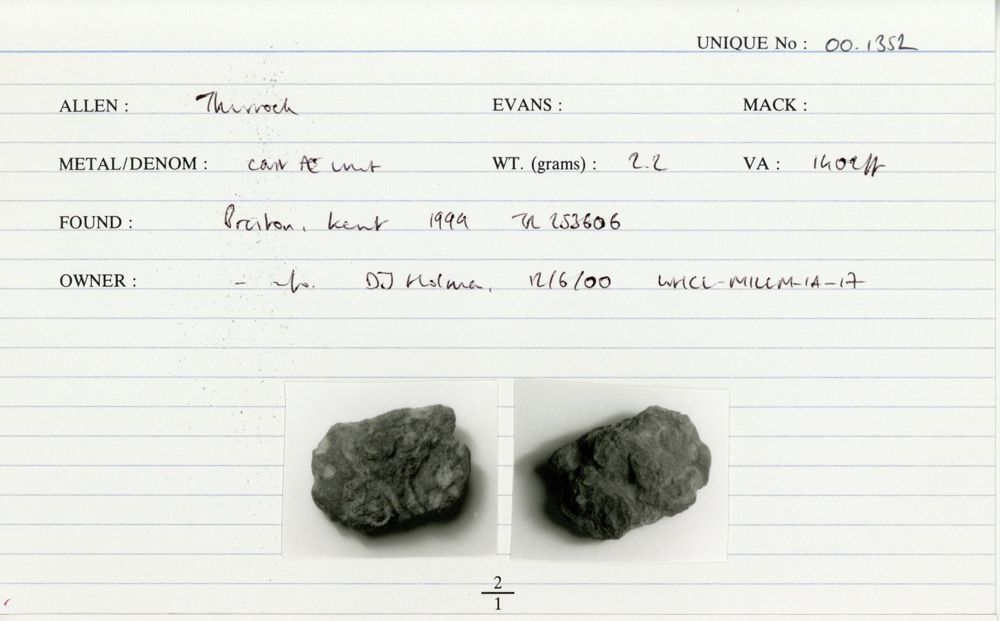 UNIQUE No : 00.1352
ALLEN : Thurrock EVANS : MACK :
METAL/DENOM : cast Æ unit WT. (grams) : 2.2 VA : 1402ff
FOUND : Preston, Kent 1999 TR 253606
OWNER : - info. DJ Holman, 12/6/00 WHCL-MILLM-IA-17
2
1